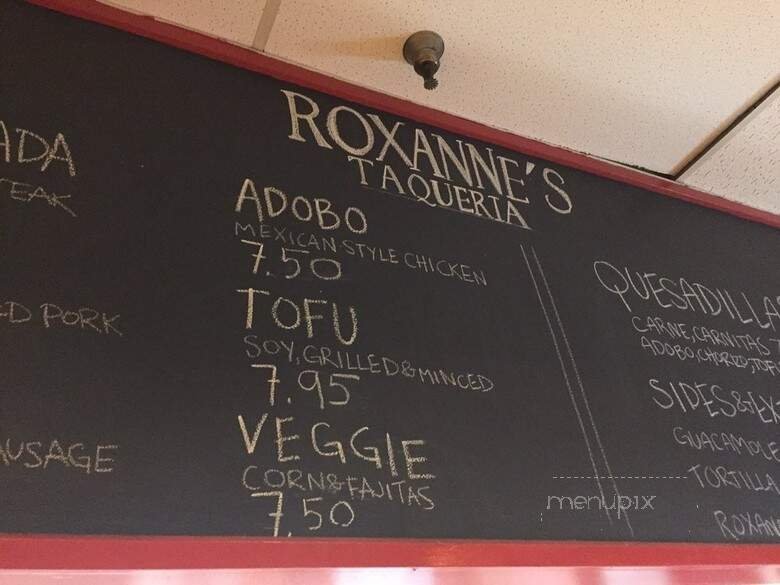 ROXANNE'S
TAQUERIA
ADA
TEAK
ED PORK
AUSAGE
ADOBO
MEXICAN STYLE CHICKEN
7.50
TOFU
SOY, GRILLED & MINCED
7.95
VEGGIE
CORN & FAJITAS
7.50
QUESADILLA
CARNE, CARNITAS
ADOBO, CHORIZO, TOF
SIDES & EX
GUACAMOLE
TORTILLA
ROXAN
menupix